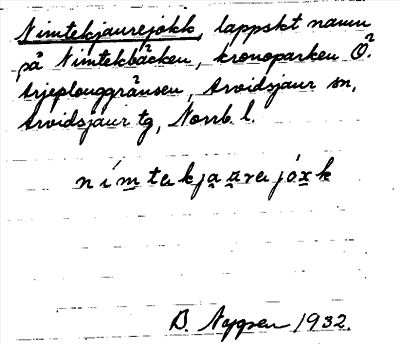 Nimtekjaurejokk, lappskt namn
på Nimtekbäcken, kronoparken Ö.
Arjeplouggränsen, Arvidsjaur sn,
Arvidsjaur tg, Norrb. l.
nímtekjaurejóxk
B. Nygren 1932.